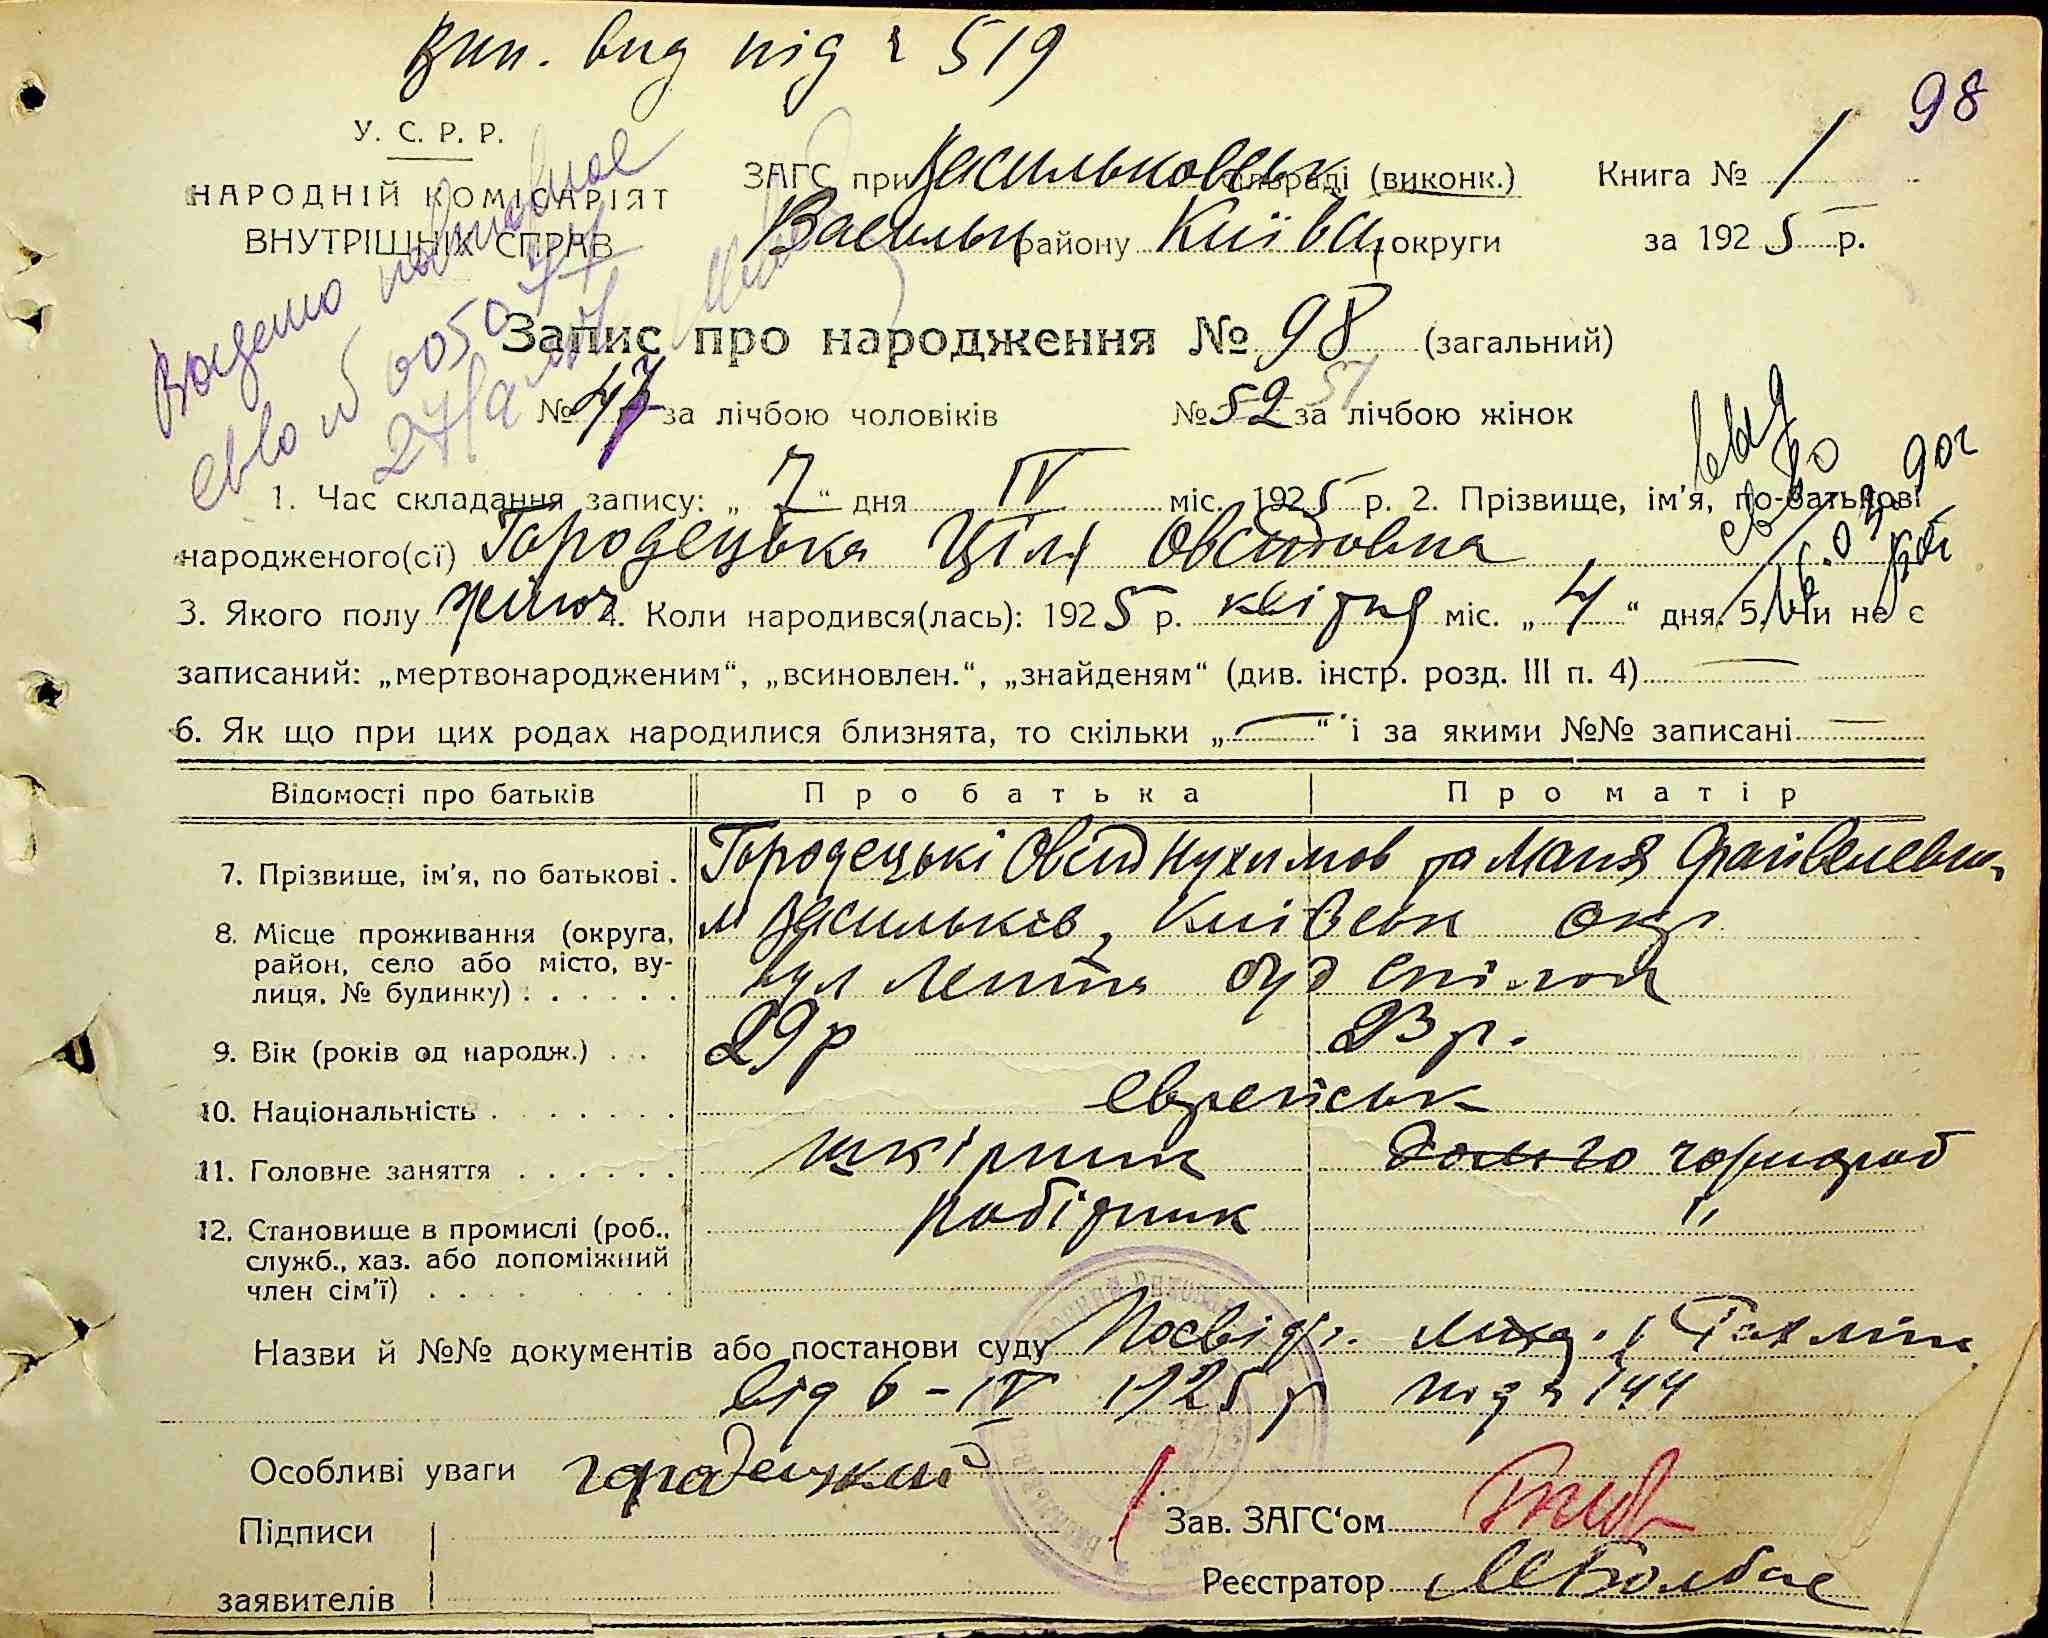 Вип. вид під ч 519
98
У. С. Р. Р.
НАРОДНІЙ КОМІСАРІЯТ
ВНУТРІШНІХ СПРАВ
ЗАГС при Васильковськ. сільраді (виконк.)
Васильк району Київськ округи
Книга № 1
за 1925 р.
Запис про народження № 98 (загальний)
№ 47 за лічбою чоловіків № 52 51 за лічбою жінок
1. Час складання запису: „ 7 “ дня IV міс. 1925 р. 2. Прізвище, ім'я, по-батькові
народженого(сї) Городецька Ціля Овсіївна
3. Якого полу жіноч 4. Коли народився(лась): 1925 р. квітня міс. „ 4 “ дня. 5. Чи не є
записаний: „мертвонародженим“, „всиновлен.“, „знайденям“ (див. інстр. розд. III п. 4)
6. Як що при цих родах народилися близнята, то скільки „ — “ і за якими №№ записані —
Відомості про батьків Про батька Про матір
7. Прізвище, ім'я, по батькові . Городецькі Овсій Нухимов та Маня Файвелевна
8. Місце проживання (округа, м Васильків, Київськ окр
район, село або місто, ву- вул Леніна буд
лиця, № будинку) : . . . . .
9. Вік (років од народж.) . . 29 р 23 р.
10. Національність . . . . . . . еврейськ
11. Головне заняття . . . . . . шкірник чорнороб
12. Становище в промислі (роб., робітник "
служб., хаз. або допоміжний
член сім'ї) . . . . . . . .
Назви й №№ документів або постанови суду Посвідч.
від 6 - IV 1925 р під ч 144
Особливі уваги городецкий
Підписи
заявителів
Зав. ЗАГС'ом
Реєстратор